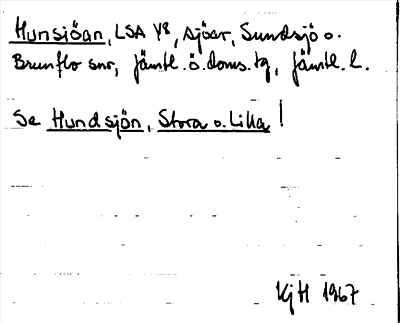 Hunsjöan, LSA Y8, sjöar, Sundsjö o.
Brunflo snr, Jämtl. ö. doms. tg, Jämtl. l.
Se Hundsjön, Stora o. Lilla!
KjH 1967